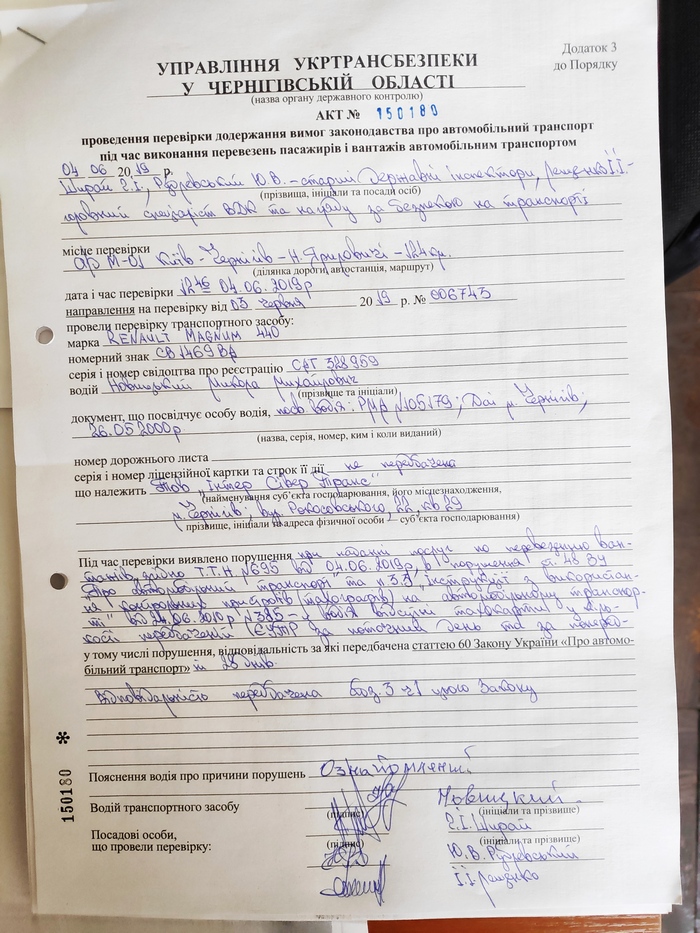 Додаток 3
до Порядку
УПРАВЛІННЯ УКРТРАНСБЕЗПЕКИ
У ЧЕРНІГІВСЬКІЙ ОБЛАСТІ
(назва органу державного контролю)
АКТ № 150180
проведення перевірки додержання вимог законодавства про автомобільний транспорт
під час виконання перевезень пасажирів і вантажів автомобільним транспортом
04 06 2019 р.
Ширай Є.І., Ю.В. – старші державні інспектори, Лещенко І.І. –
(прізвища, ініціали та посади осіб)
головний спеціаліст ВДК та нагляду за безпекою на транспорті
місце перевірки
а/д М-01 Київ – Чернігів – Н. Яриловичі – 124 км.
(ділянка дороги, автостанція, маршрут)
дата і час перевірки 12 46 04.06.2019р
направлення на перевірку від 03 червня 2019 р. № 006743
провели перевірку транспортного засобу:
марка RENAULT MAGNUM 440
номерний знак СВ 1469 ВА
серія і номер свідоцтва про реєстрацію САТ 328959
водій Новицький Микола Михайлович
(прізвище та ініціали)
документ, що посвідчує особу водія, посв. водія: РМА №105179; Даі м. Чернігів;
26.05.2000р
(назва, серія, номер, ким і коли виданий)
номер дорожнього листа
серія і номер ліцензійної картки та строк її дії не передбачена
що належить ТОВ „Інтер Сівер Транс"
(найменування суб’єкта господарювання, його місцезнаходження,
м. Чернігів; вул. Рокосовського, 22, кв 29
прізвище, ініціали та адреса фізичної особи – суб’єкта господарювання)
Під час перевірки виявлено порушення при наданні послуг по перевезенню ван-
тажів, згідно Т.Т.Н №695 від 04.06.2019р, в порушення ст. 48 ЗУ
„Про автомобільний транспорт" та п 3.3 „Інструкції з використан-
ня контрольних пристроїв (тахографів) на автомобільному транспор-
ті" від 24.06.2010р №385 – у водія відсутні тахокарти у кіль-
кості передбаченій ЄУТР за поточний день та за поперед-
у тому числі порушення, відповідальність за які передбачена статтею 60 Закону України «Про автомо-
більний транспорт» ні 28 днів.
відповідальність передбачена абз. 3 ч1 цього Закону
Пояснення водія про причини порушень Ознайомлений.
Водій транспортного засобу Новицкий.
(підпис) (ініціали та прізвище)
Посадові особи, Є.І. Ширай
що провели перевірку: (підпис) (ініціали та прізвище)
Ю.В.
І.І. Лещенко
150180 *